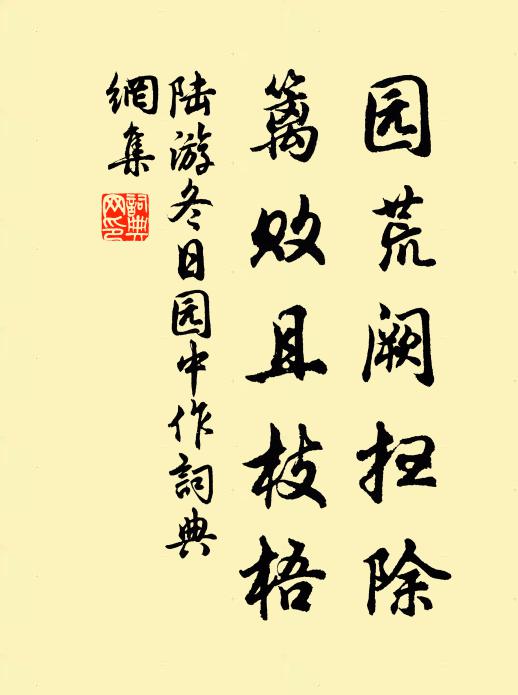 园荒阙扫除
篱败且枝梧
陆游冬日园中作詞典
網集
詞典
网印